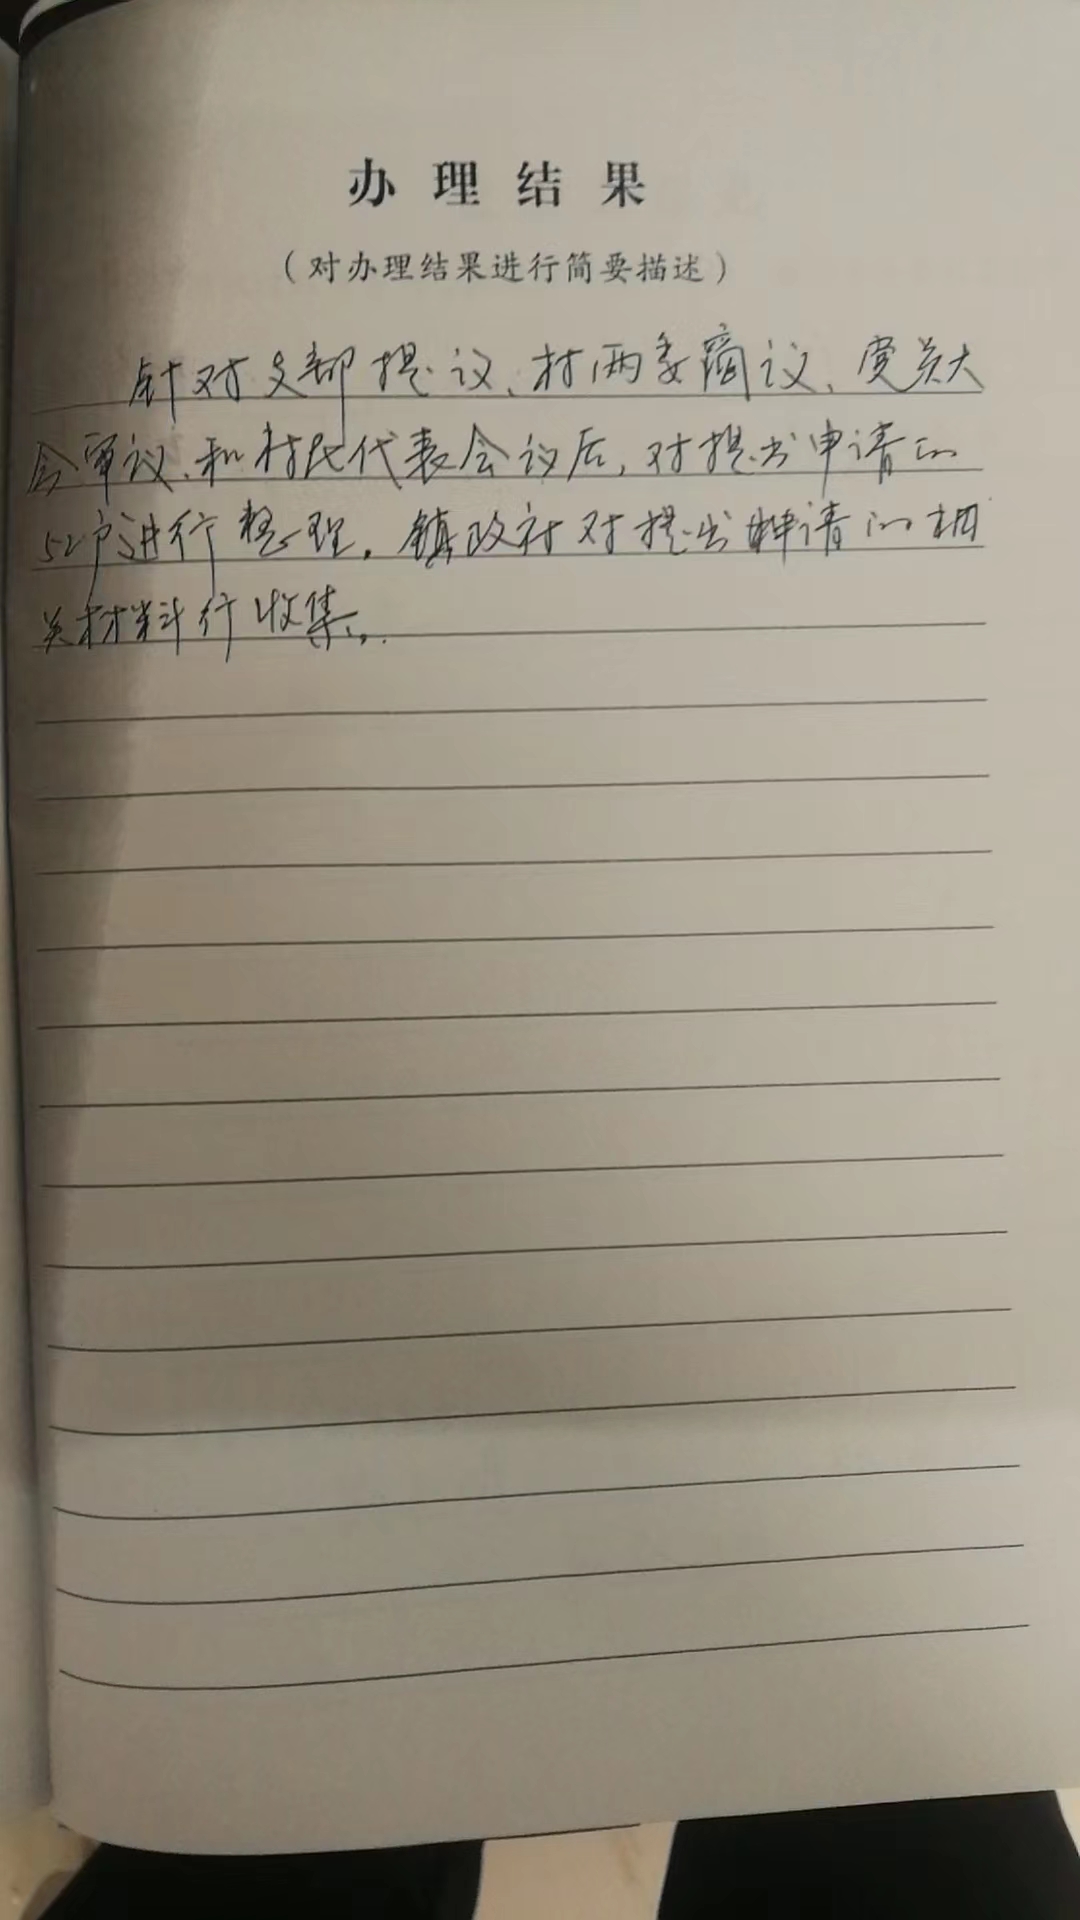 办理结果
（对办理结果进行简要描述）
针对支部提议、村两委商议、党员大
会审议、和村民代表会议后，对提出申请的
52户进行整理，镇政府对提出申请的相
关材料行收集。